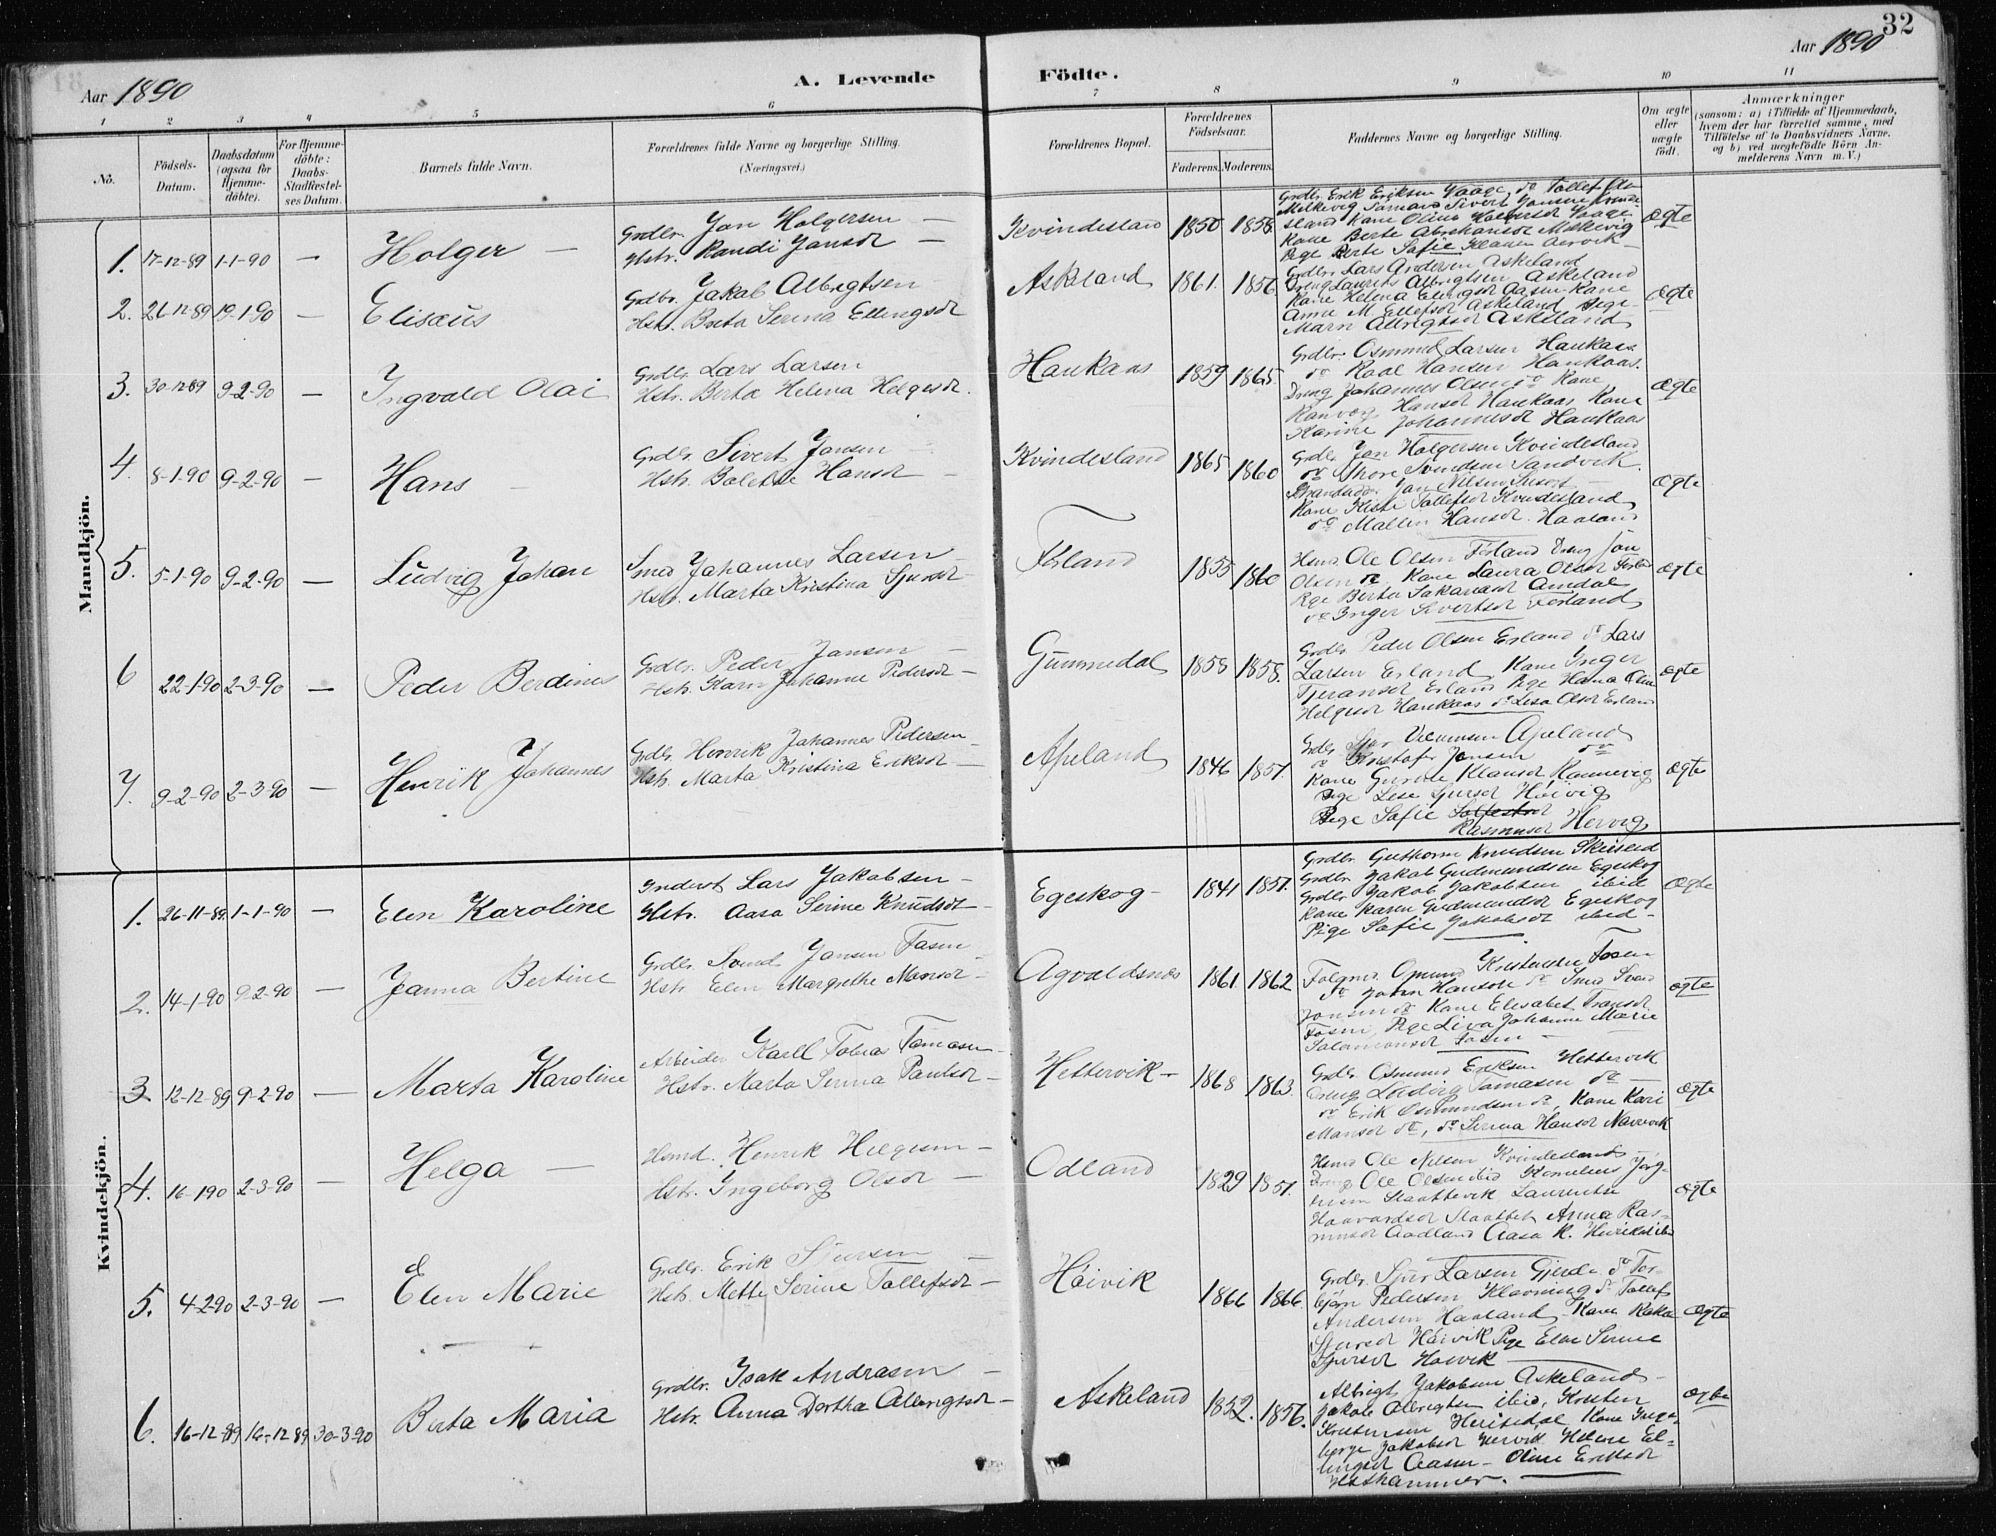 32
Aar 1890
A. Levende
Födte.
Aar 1890
1 2 3 4 5 6 7 8 9 10 11
No.
Födsels-Datum.
Daabsdatum (ogsaa for Hjemme-döbte).
For Hjemme-döbte: Daabs-Stadfæstel-ses Datum.
Barnets fulde Navn.
Forældrenes fulde Navne og borgerlige Stilling.
(Næringsvei.)
Forældrenes Bopæl.
Forældrenes Födselsaar.
Faderens. Moderens.
Faddernes Navne og borgerlige Stilling.
Om ægte eller uægte födt.
Anmærkninger
(saasom: a) i Tilfælde af Hjemmedaab,
hvem der har forrettet samme, med
Tilföielse af to Daabsvidners Navne,
og b) ved uægtefödte Börn An-
melderens Navn m. V.)
Mandkjön.
1. 17-12-89 1-1-90 — Holger —
Grdbr. Jan Holgersen —
Hstr. Randi Jansdr —
Kvindesland 1850 1858
Grdbr. Erik Eriksen Vaage, do Tollef
Kane Berte Abrahamsdr Melkevig
Pige Berte Safie Klausen
ægte
2. 26-12-89 19-1-90 — Elisæus
Grdbr. Jakob Albregtsen
Hstr. Berta Serina Ellingsdr
Askeland 1861. 1856
Grdbr. Lars Andersen Askeland
Dreng Laurits Albrigtsen Askeland
Kane Helena Elingsdr Aasen Kane
Anne M Ellefsdr Askeland Pige
Marn Albregtsdr Askeland
ægte
3. 30-12-89 9-2-90 — Ingvald Olai
Grdbr. Lars Larsen
Hstr. Berta Helena Helgesdr.
Haukaas 1859 1865.
Grdbr. Osmund Larsen Haukaas
do Roal Hansen Haukaas.
Dreng Johannes Olsen do Kane
Ranveg Hansdr Haukaas Kane
Karine Johannesdr Haukaas
ægte
4. 8-1-90 9-2-90 — Hans
Grdbr. Sivert Jansen
Hstr. Bolette Hansdr —
Kvindesland 1865 1860
Grdbr Jan Holgersen Kvindesland
do Thore Svendsen Sandvik.
Strandsdr. Jan Nilsen
Kane Kisti Tollefsdr Kvindesland
do Mallin Hansdr. Haaland
ægte
5. 5-1-90 9-2-90 — Ludvig Johan
Smed Johannes Larsen —
Hstr. Marta Kristina Sjursdr —
Førland 1855 1860
Hsmd Ole Olsen Førland Dreng Jan
Olsen do. Kane Laura Olsdr
Pige Berta Sakariasdr Amdal
do Inger Sivertsdr Førland
ægte
6 22-1-90 2-3-90 — Peder Berdines
Grdbr. Peder Jansen —
Hstr. Karn Johanne Pedersdr —
Gunnedal 1858 1858.
Grdbr. Peder Olsen Erland do Lars
Larsen Erland Kane Inger
Tjeransdr Erland Pige Hana Olia
Helgesdr Haukaas do Lesa Olsdr Erland
ægte
7. 9-2-90 2-3-90 — Henrik Johannes
Grdbr. Henrik Johannes Pedersen
Hstr. Marta Kristina Eriksdr —
Apeland 1846 1851
Grdbr Sjur Apeland
do Kristofer Jensen do
Kane Gurine Klausdr Rannevig
Pige Lese Sjursdr Høivig
Pige Safie
Rasmusdr Hervig
ægte
Kvindekjön.
1. 26-11-89 1-1-90 — Elen Karoline
Inderst Lars Jakobsen —
Hstr. Aasa Serine Knudsdr —
Egeskog — 1841 1851.
Grdbr. Guthorm Knudsen Skeiseid
Grdbr. Jakob Gudmundsen Egeskog
Grdbr Jakob Jakobsen ibid
Kane Karen Gudmundsdr Egeskog
Pige Safie Jakobsdr ibid —
ægte
2. 14-1-90 9-2-90 — Janna Bertine
Grdbr. Svend Jansen Fosen
Hstr. Elen Margrethe Mansdr —
Agvaldsnes 1861 1862
Kristensen Fosen
do Johan Hansen do Smed Svend
Jonsen do Kane Elisabet Transdr
Fosen, Pige Lina Johanne Marie
Salamonsdr Fosen —
ægte
3 12-12-89 9-2-90 — Marta Karoline
Arbeider Karll Tobias Tomasen
Hstr. Marta Serina Paulsdr —
Hettervik — 1868 1863
Grdbr Osmund Eriksen Hettervik
Dreng Ludvig Tomasen do —
do Erik Osmundsen do, Kane Kari
Mansdr do, do Serina Hansdr
ægte
4. 16-1 90 2-3-90 — Helga —
Hsmd. Henrik Helgesen —
Hstr. Ingeborg Olsdr —
Odland 1829 1851.
Hsmd Ole Nilsen Kvindesland
Dreng Ole Olsen ibid Kornelius Jörg-
ensen Laurentse
Haavardsdr Anna Ras-
musdr Aadland Aasa K. Henriksd ibid
ægte
5. 4-2-90 2-3-90 — Elen Marie
Grdbr. Erik Sjursen —
Hstr. Mette Serine Tollefsdr —
Høivik 1866 1866.
Grdbr. Sjur Larsen Gjerde do Tor-
bjørn Pedersen do Tollef
Andersen Haaland Kane
Sjursdr Høivik Pige Elen Serine
Sjursdr Høivik
ægte
6. 16-12-89 16-12-89 30-3-90 Berta Maria
Grdbr. Isak Andrasen —
Hstr. Anna Dortha Albregtsdr —
Askeland 1852. 1856.
Albrigt Jakobsen Askeland —
Jakob Albregtsen ibid, Kristen
Kristensen Kane Inge-
borg Jakobsdr Hervik Helene El-
lingsdr Aasen — Oline Eriksdr
ægte